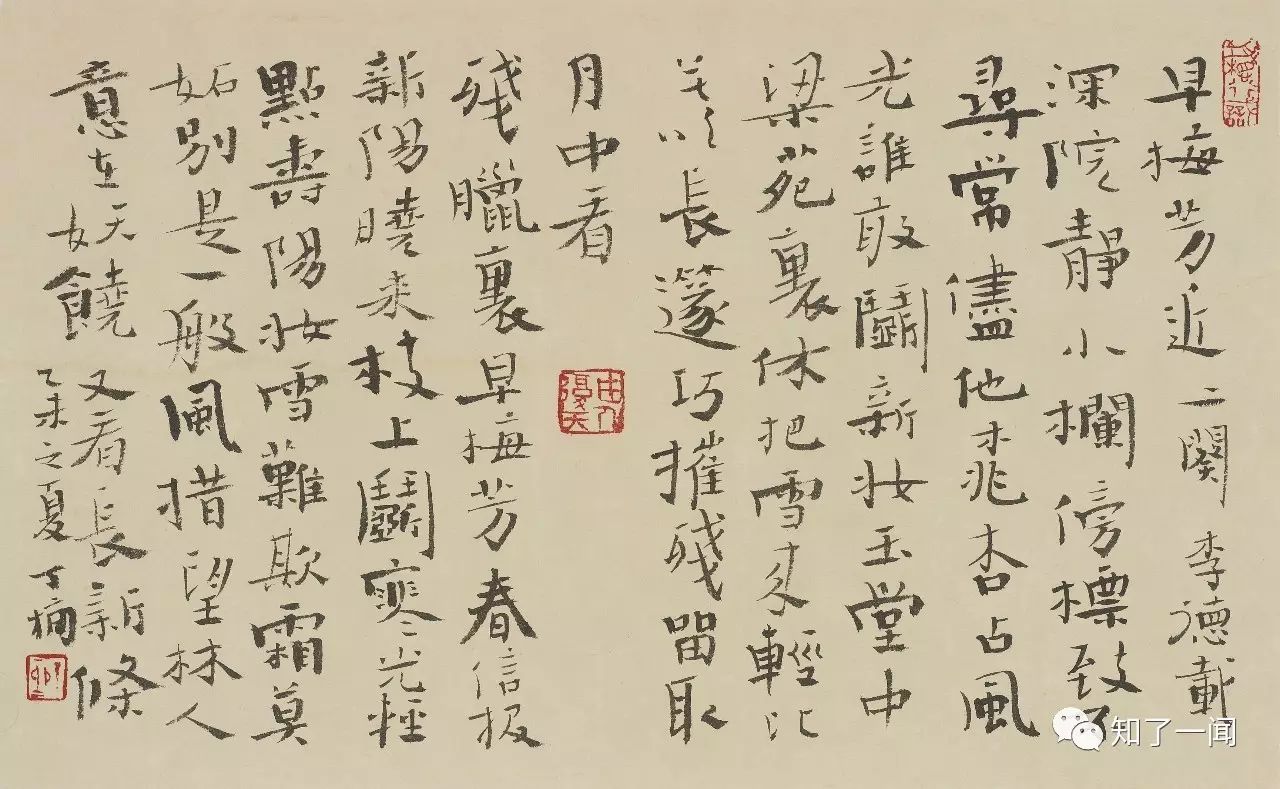 早梅芳近二闋李德載
深院靜小欄傍標致
尋常儘他桃杏占風
光誰敢鬭新妝玉堂中
梁苑裏休把雪來輕比
羌
長邃巧摧殘留取
月中看
殘臘裏早梅芳春信報
新陽曉來枝上鬭寒光輕
點壽陽妝雪難欺霜莫
妬別是一般風措望林人
意在妖饒
又看長新條
乙未之夏
知了一闻